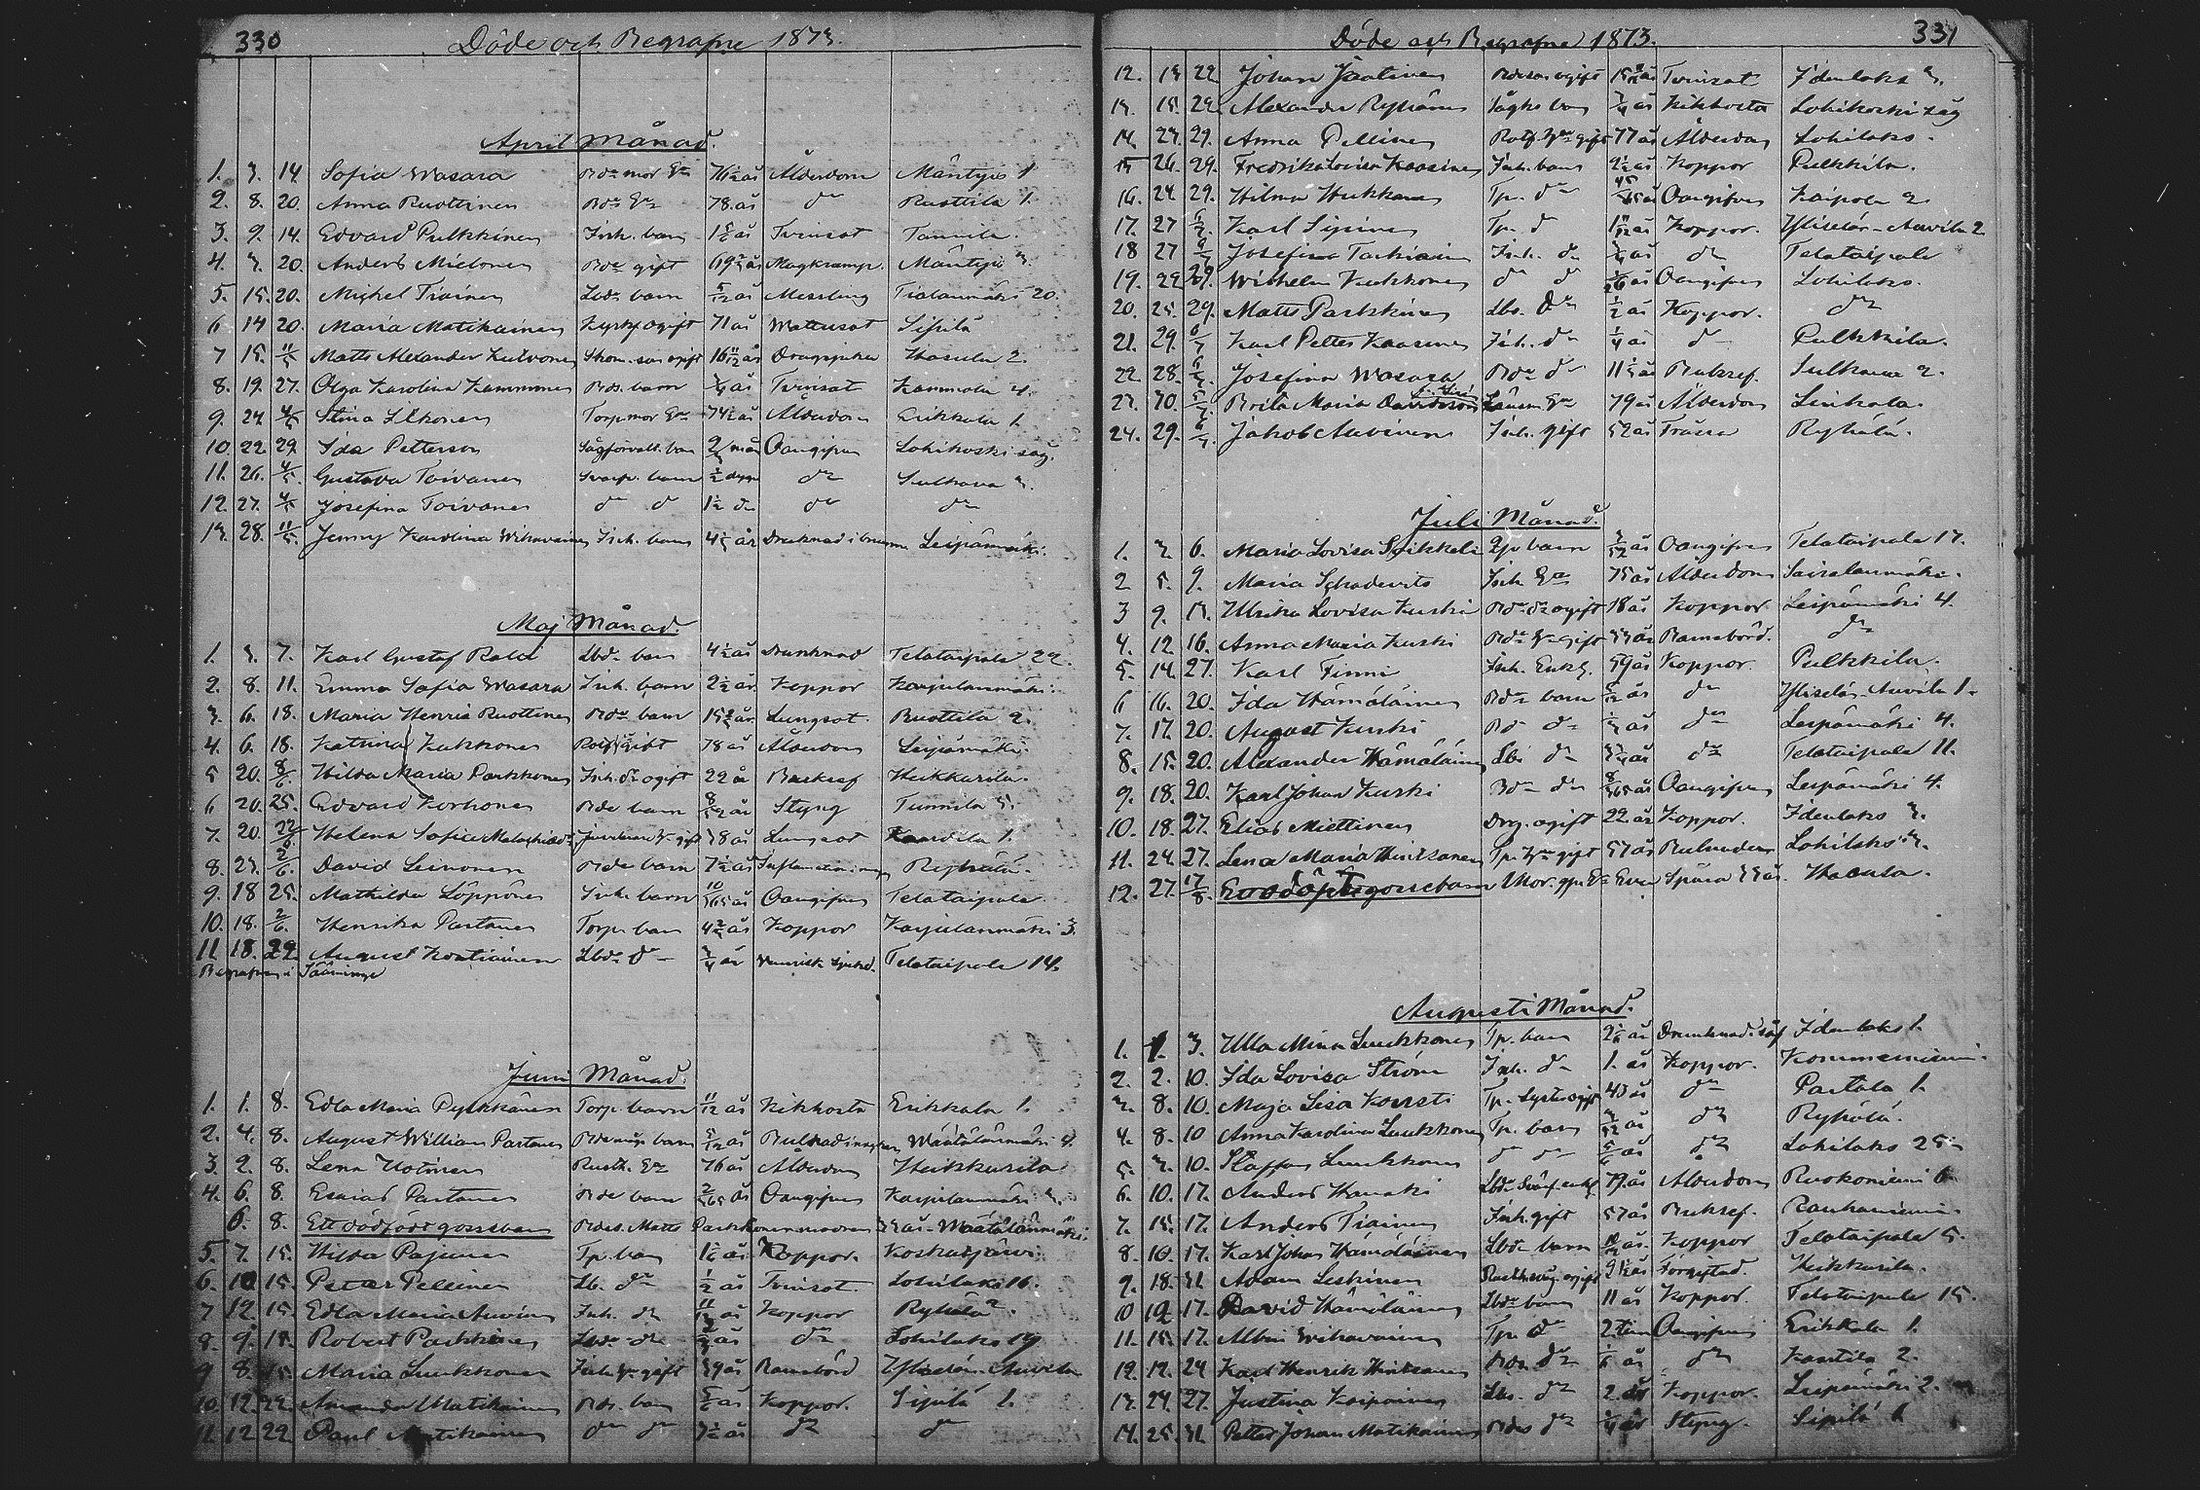 330 Döde och Begrafne 1873.
April Månad.
1. 3. 14. Sofia Wasara Bde mor Ea 76½ år Ålderdom Mäntyis 1
2. 8. 20. Anna Ruottinen Bde Ea 78. år do Ruottila 1.
3. 9. 14. Edvard Pulkkinen Inh. barn Tvinsot Tunnila.
4. 3. 20. Anders Mielonen Bde gift Magkramp. Mäntyis 3.
5. 15. 20. Mickel Tiainen Lbde barn 5/12 år Messling Tiolanmäki 20.
6 14 20. Maria Matikainen ogift 71 år Wattusot Sipilä
7 15. 11/5 Matts Alexander Kulvonen Skom. son ogift 16 11/12 år Dragsjuka Hasula 2.
8. 19. 27. Olga Karolina Kammonen Bde. barn ¾ år Tvinsot Kammola 4.
9. 24 4/5 Stina Ilkonen Torp.mor Ea 74½ år Ålderdom Erikkala 1.
10. 22. 29. Ida Petterson Sågförvalt. barn Oangifven Lohikoski såg.
11. 26. 4/5 Gustava Toivanen barn ½ dygn do Sulkava 3.
12. 27. 4/5 Josefina Toivanen do do 1½ do do do
13. 28. 11/5. Jenny Karolina Wihavainen Inh. barn Drunknad i brunn Leipämäki.
Maj Månad.
1. 3. 7. Karl Gustaf Lbde barn 4½ år Drunknad Telataipale 22.
2. 8. 11. Emma Sofia Wasara Inh. barn 2½ år. Koppor Karjulanmäki.
3. 6. 18. Maria Henrica Ruottinen Bde barn Lungsot. Ruottila 2.
4. 6. 18. Katrina Kukkonen gift 78 år Ålderdom Leipämäki.
5 20. 8/6 Hilda Maria Parkkonen Inh. dr ogift 22 år Bukref Heikkurila.
6 20. 25. Edvard Korhonen Bde barn 8/12 år Styng Tunnila 5.
7. 20. 22/6 Helena Sofia gift 38 år Lungsot Kaartila 1.
8. 23. 2/6. David Leinonen Bde barn 7½ år Inflammation Ryhälä.
9. 18 25. Mathilda Löppönen Inh. barn 10/365 år Oangifven Telataipale
10. 18. 2/6. Henrika Partanen Torp. barn Koppor Karjulanmäki 3.
11. 18. 22. August Kostiainen Lbde do ¾ år Venerisk sjukd. Telataipale 14.
Begrafven i Sääminge
Juni Månad.
1. 1. 8. Edla Maria Pyykkänen Torp. barn 11/12 år Kikhosta Erikkala 1.
2. 4. 8. August William Partanen barn 5/12 år Mäntälänmäki 4.
3. 2. 8. Lena Uotinen Rusth. Ea 76 år Ålderdom Heikkurila
4. 6. 8. Esaias Partanen Bde barn 2/365 år Oangifven Karjulanmäki 3.
6. 8. Ett dödfödt gossebarn Bdes. Matts Parkkonens
5. 7. 15. Hilda Pajunen Tp. barn Koppor. Koskutjärvi.
6. 10 15. Petter Pellinen Lb. do ½ år Tvinsot. Lohilaks 16.
7 12. 15. Edla Maria Auvinen Inh. do 11/12 år Koppor Ryhälä 2.
8. 9. 15. Robert Parkkinen Lbde do ¾ år do Lohilaks 19
9 8. 15. Maria Luukkonen Inh. Hu gift 39 år Barnsbörd Yliselän Auvila
10. 12. 22. Amanda Matikainen Bde. barn Koppor. Sipilä 1.
11. 12 22 Paul Matikainen do do 7½ år do do
Döde och Begrafne 1873. 331
12. 13. 22. Johan Jaatinen Bdeson ogift Tvinsot Idenlaks 3.
13. 15. 22. Alexander Ryhänen Sågks barn ¾ år Kikhosta Lohikoski såg
14. 23. 29. Anna Pellinen gift 77 år Ålderdom Lohilaks.
15 26. 29. Fredrika Lovisa Kaasinen Inh. barn 2½ år Koppor Pulkkila.
16. 24. 29. Hilma Hukkanen Tp. do Oangifven Kaipola 2.
17. 27 6/7. Karl Sipinen Tp. do 1 11/12 år Koppor. Yliselän-Auvila 2
18 27 6/7 Josefina Tarkiainen Inh. do ¾ år do Telataipale
19. 29 29. Wilhelm Kukkonen do do Oangifven Lohilaks.
20. 25. 29. Matts Parkkinen Lbs. do ½ år Koppor. do
21. 29. 6/7 Karl Petter Kaasinen Inh. do ¼ år do Pulkkila.
22. 28. 6/7. Josefina Wasara Bde do 11½ år Bukref. Sulkava 2.
23. 30. 5/7. Brita Maria Davidsson Länsm. Ea 79 år Ålderdom Linkola.
24. 29. 6/7. Jakob Auvinen Inh. gift 52 år Tråssa Ryhälä.
Juli Månad.
1. 3. 6. Maria Lovisa Pikkeli barn 3/12 år Oangifven Telataipale 17.
2 5. 9. Maria Schadevits Inh Ea 75 år Ålderdom Sairalanmäki.
3 9. 13. Ulrika Lovisa Kurki Bde dr ogift 18 år Koppor. Leipämäki 4.
4. 12 16. Anna Maria Kurki Bde Hu gift 33 år Barnsbörd. do
5. 14. 27. Karl Finni Inh. Enkl. 59 år Koppor. Pulkkila.
6 16. 20. Ida Hämäläinen Bde barn 5/12 år do Yliselän-Auvila 1.
7. 17. 20. August Kurki Bd do ½ år do Leipämäki 4.
8. 15. 20. Alexander Hämäläinen Lbs do do Telataipale 11.
9. 18. 20. Karl Johan Kurki Bde do 8/365 år Oangifven Leipämäki 4.
10. 18. 27. Elias Miettinen Drg. ogift 22 år Koppor. Idenlaks 3.
11. 24. 27. Lena Maria Hintsanen Tp. Hu gift 57 år Lohilaks 3.
12. 27. 17/8. gossebarn Mor. Eva Spåra 33 år. Hasula.
Augusti Månad.
1. 1. 3. Ulla Mina Luukkonen Tp. barn Drunknad Idenlaks 1.
2. 2. 10. Ida Lovisa Ström Inh. do 1. år Koppor. Kommerniemi.
3. 8. 10. Maja Lisa Kousti Tp. Syster ogift 43 år do Partala 1.
4. 8. 10 Anna Karolina Luukkonen Tp. barn 3/12 år do Ryhälä.
5. 3. 10. Staffan Luukkonen do do 5/6 år do Lohilaks 25.
6. 10. 17. Anders Kauski Lbde Svåg. enkl. 79. år Ålderdom Ruokoniemi 6.
7. 15. 17. Anders Tiainen Inh. gift 57 år Bukref. Rauhaniemi.
8. 10. 17. Karl Johan Hämäläinen Lbde barn Koppor Telataipale 5.
9. 18. 31 Adam Leskinen ogift Förgiftad. Heikkurila.
10 12 17. David Hämäläinen Lbde barn 11 år Koppor. Telataipale 15.
11. 15. 17. Albin Wihavainen Tp. do 2 tim Oangifven Erikkala 1.
12. 12. 24 Karl Henrik Hintsanen Bde do do Kaartila 2.
13. 24. 27. Justina Kaipainen Lbs. do 2. år Koppor. Leipämäki 2.
14. 25. 31. Petter Johan Matikainen Bdes do Styng. Sipilä 1.